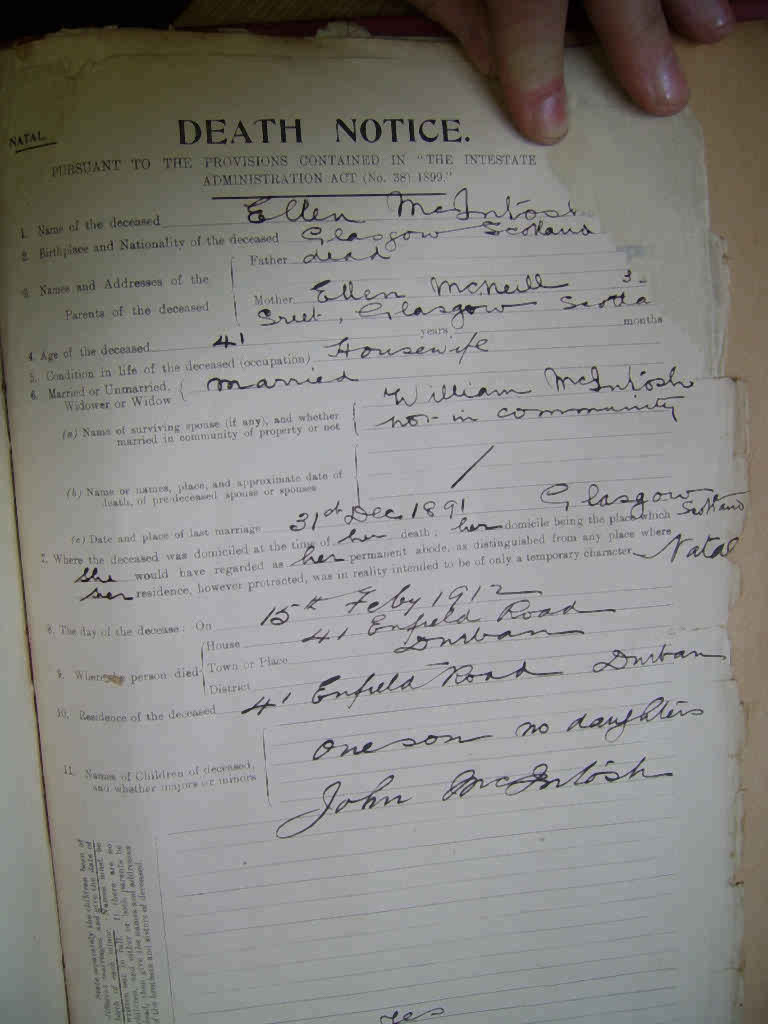 NATAL
DEATH NOTICE.
PURSUANT TO THE PROVISIONS CONTAINED IN "THE INTESTATE
ADMINISTRATION ACT (No. 38) 1899."
1. Name of the deceased Ellen McIntosh
2. Birthplace and Nationality of the deceased Glasgow Scotland
3. Names and Addresses of the Parents of the deceased
Father dead
Mother Ellen McNeill 3
Sreet, Glasgow Scotla
4. Age of the deceased 41 years months
5. Condition in life of the deceased (occupation) Housewife
6. Married or Unmarried, Widower or Widow Married
(a) Name of surviving spouse (if any), and whether married in community of property or not
William McIntosh
not in community
(b) Name or names, place, and approximate date of death, of pre-deceased spouse or spouses /
(c) Date and place of last marriage 31st Dec 1891 Glasgow Scotland
7. Where the deceased was domiciled at the time of her death; her domicile being the place which
she would have regarded as her permanent abode, as distinguished from any place where
her residence, however protracted, was in reality intended to be of only a temporary character Natal
8. The day of the decease: On 15th Feby 1912
9. Where the person died
House 41 Enfield Road
Town or Place Durban
District
10. Residence of the deceased 41 Enfield Road Durban
11. Names of Children of deceased, and whether majors or minors
one son no daughters
John McIntosh
yes